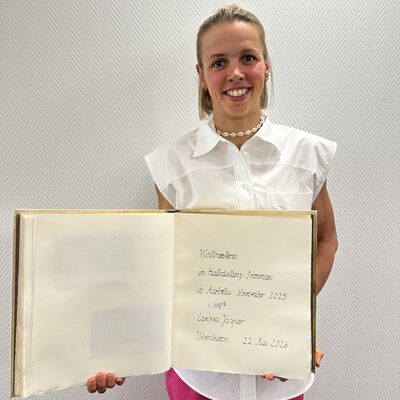 Weltmeisterin
im Halbdistanz-Ironman
in Marbella November 2025
Larina Jasper
Ibbenbüren, 22. Mai 2026